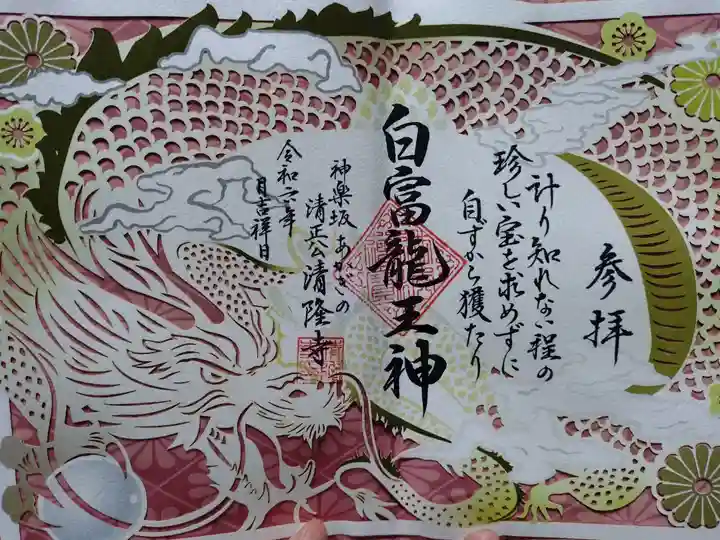 参拝
計り知れない程の
珍しい宝を求めずに
自ずから獲たり
白富龍王神
神楽坂あかぎの
清正公清隆寺
令和六年
月吉祥日